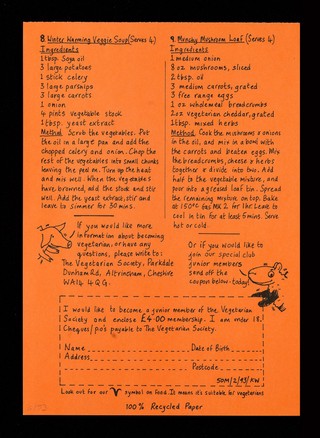 8. Winter Warming Veggie Soup (Serves 4)
Ingredients
1 tbsp. Soya oil
3 large potatoes
1 stick celery
3 large parsnips
3 large carrots
1 onion
4 pints vegetable stock
1 tbsp. yeast extract
Method. Scrub the vegetables. Put
the oil in a large pan and add the
chopped celery and onion. Chop the
rest of the vegetables into small chunks
leaving the peel on. Turn up the heat
and mix well. When the vegetables
have browned, add the stock and stir
well. Add the yeast extract, stir and
leave to simmer for 30 mins.
9. Munchy Mushroom Loaf (Serves 4)
Ingredients
1 medium onion
8 oz. mushrooms, sliced
1 tbsp. oil
3 medium carrots, grated
3 free range eggs
1 oz wholemeal breadcrumbs
2 oz vegetarian cheddar, grated
1 tbsp. mixed herbs
Method. Cook the mushrooms & onions
in the oil, and mix in a bowl with
the carrots and beaten eggs. Mix
the breadcrumbs, cheese & herbs
together & divide into two. Add
half to the vegetable mixture, and
pour into a greased loaf tin. Spread
the remaining mixture on top. Bake
at 150°C Gas Mk 2 for 1hr. Leave to
cool in tin for at least 5 mins. Serve
hot or cold.
If you would like more
information about becoming
vegetarian, or have any
questions, please write to:
The Vegetarian Society, Parkdale
Dunham Rd, Altrincham, Cheshire
WA14 4QG.
Or if you would like to
join our special club
for junior members
send off the
coupon below - today!
I would like to become a junior member of the Vegetarian
Society and enclose £4.00 membership. I am under 18.
Cheques/p.o's payable to The Vegetarian Society.
Name Date of Birth
Address
Postcode
50M/2/93/KW
Look out for our V symbol on food. It means it's suitable for vegetarians
100% Recycled Paper